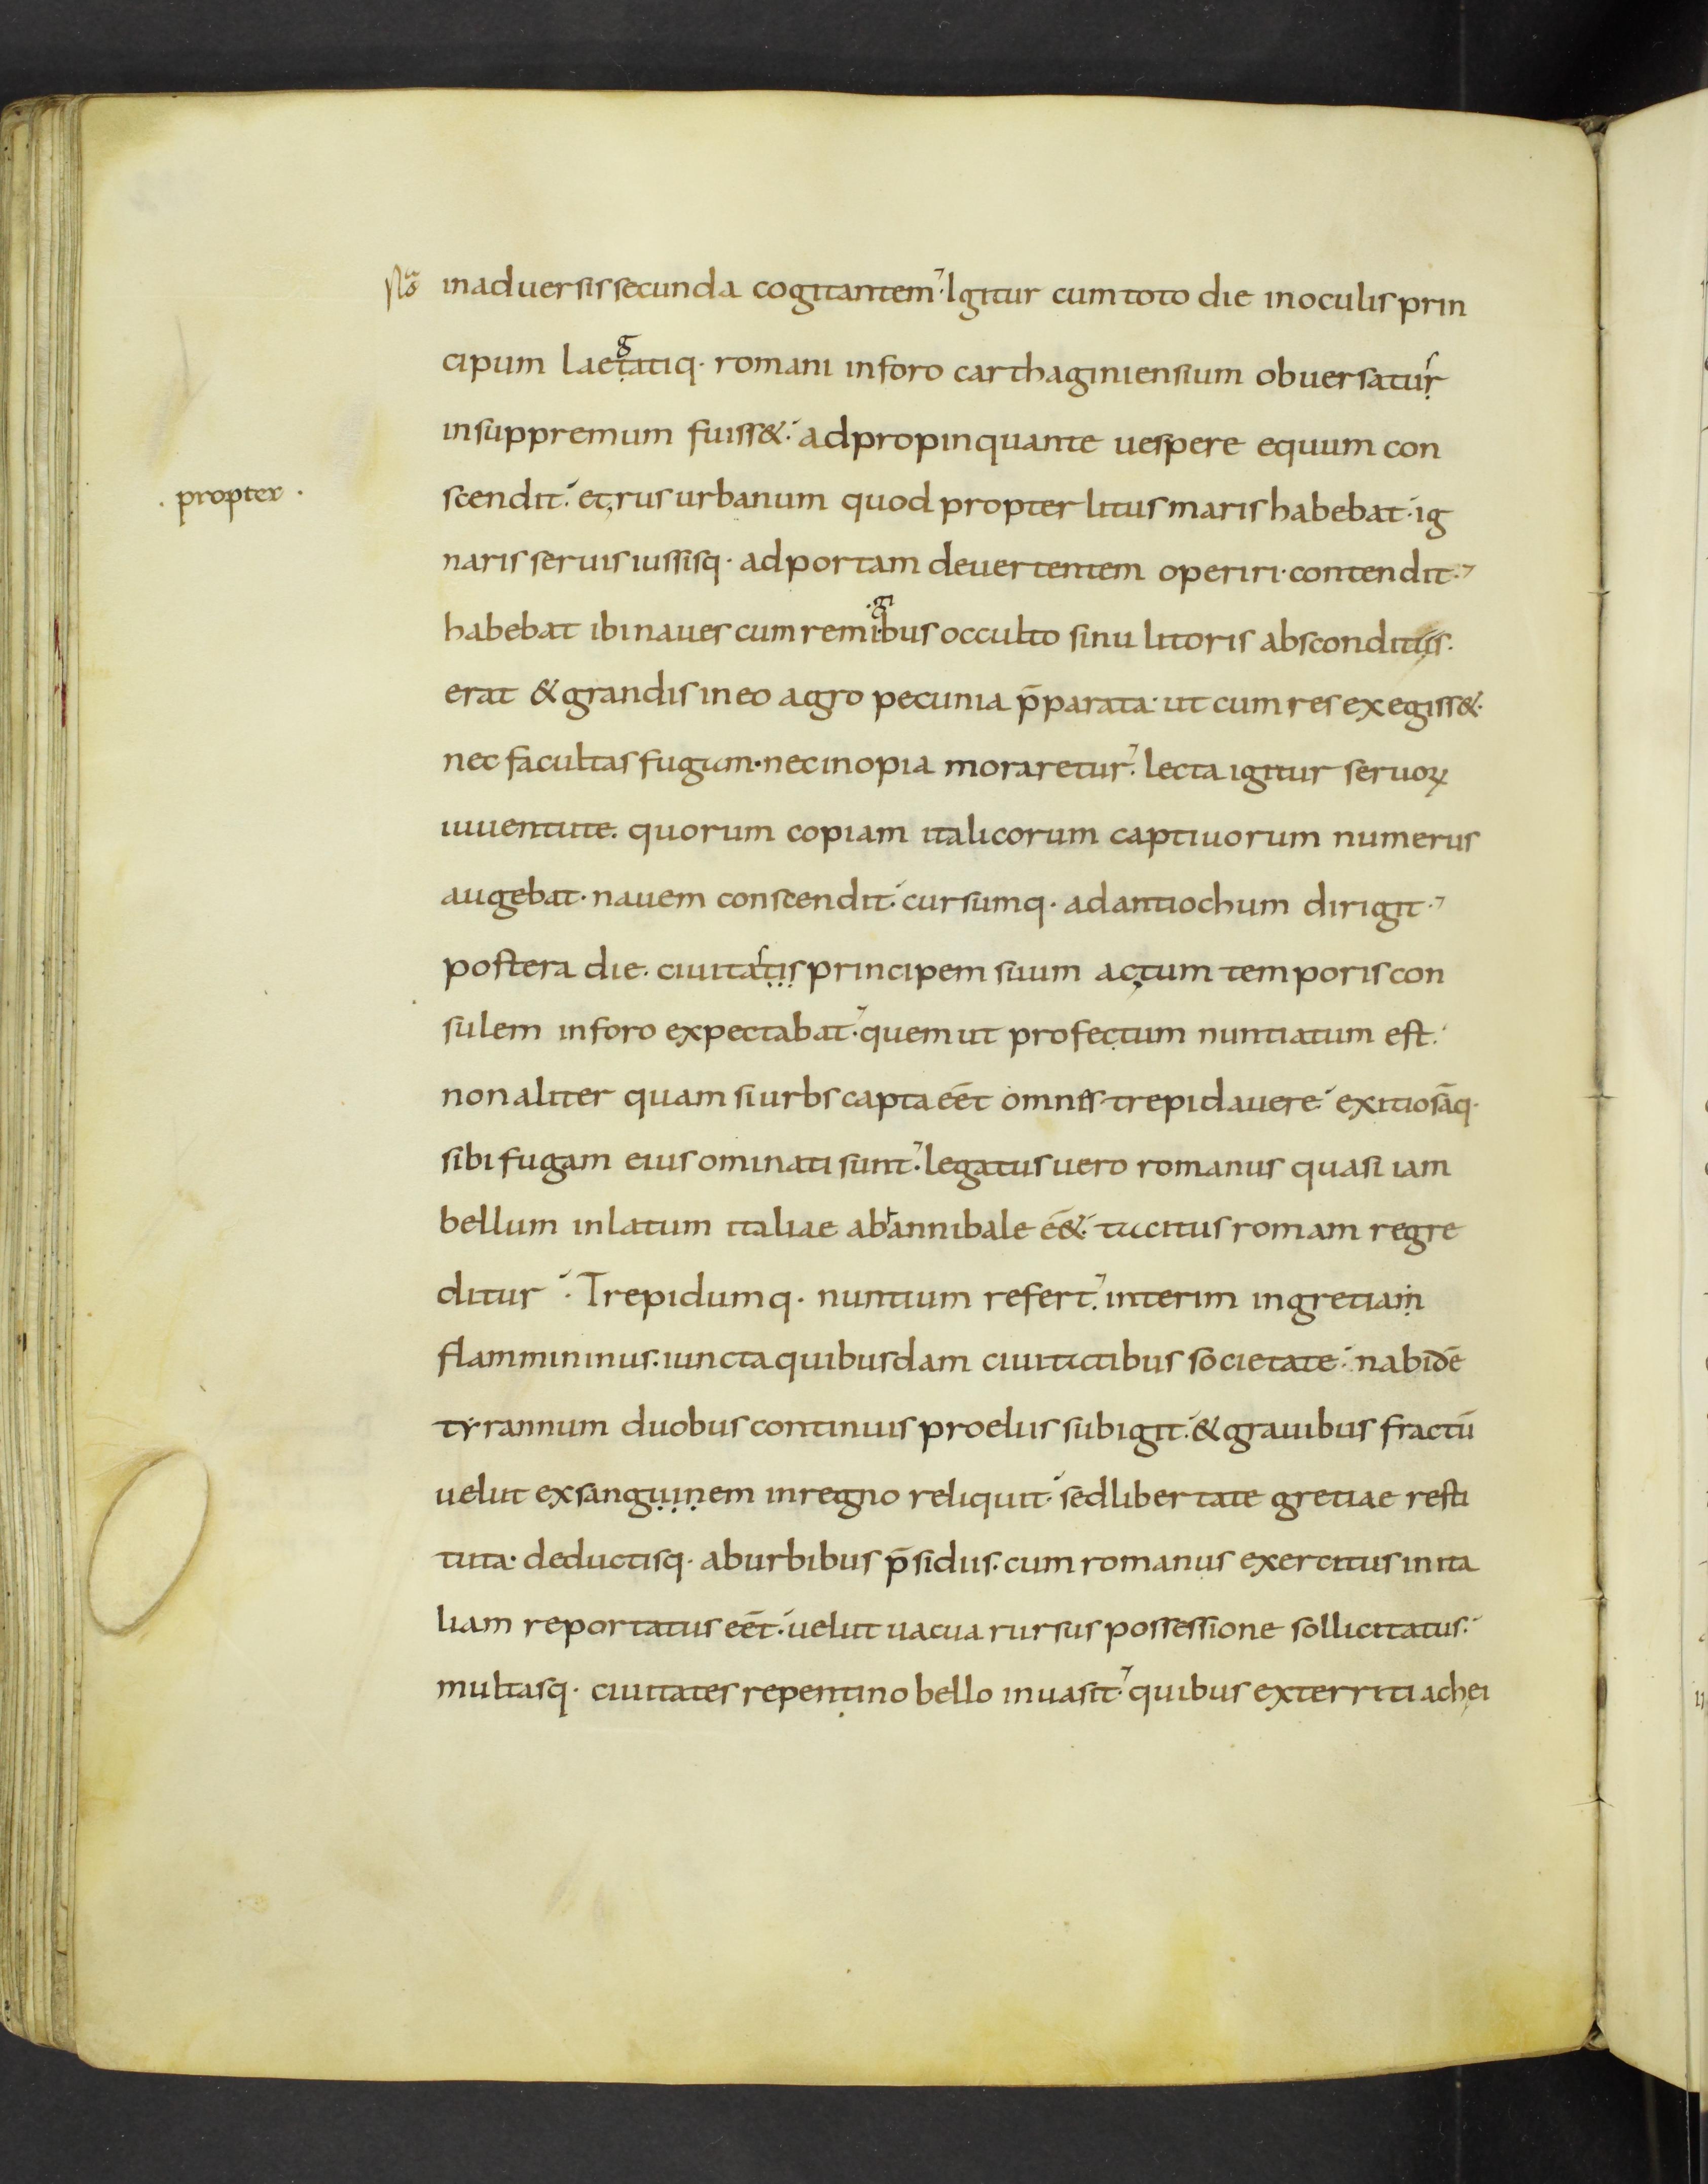 No&#42779;
inaduersis secunda cogitantem. Igitur cum toto die inoculis prin
cipum laetatiq· romani inforo carthaginiensium obuersatur
insuppremum fuiss&. adpropinquante uespere equum con
· propter ·
scendit. et rus urbanum quod propter litus maris habebat. ig
naris seruis iussisq· adportam deuertentem operiri. contendit.
habebat ibi naues cum remigibus occulto sinu litoris absconditus.
erat & grandis in eo agro pecunia p̄parata. ut cum res exegiss&.
nec facultas fugam. nec inopia moraretur. lecta igitur seruoꝝ
iuuentute. quorum copiam italicorum captiuorum numerus
augebat. nauem conscendit. cursumq· adantiochum dirigit.
postera die. ciuitatis principem suum actum temporis con
sulem inforo expectabat. quem ut profectum nuntiatum est.
non aliter quam si urbs capta eēt omnes trepidauere. exitiosāq·
sibi fugam eius ominati sunt. legatus uero romanus quasi iam
bellum inlatum italiae abhannibale eē&. tacitus romam regre
ditur. Trepidumq· nuntium refert. interim ingretiam
flammininus. iuncta quibusdam ciuitatibus societate. nabidē
tyrannum duobus continuis proeliis subigit. & grauibus fractū
uelut exsanguinem inregno reliquit. sed libertate gretiae resti
tuta. deductisq· aburbibus p̄sidiis. cum romanus exercitus inita
liam reportatus eēt. uelut uacua rursus possessione sollicitatus.
multasq· ciuitates repentino bello inuasit. quibus exterriti achei